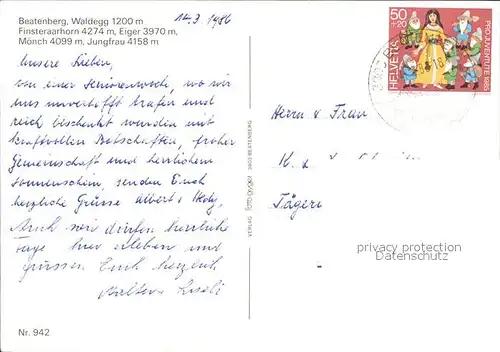 Beatenberg, Waldegg 1200 m
Finsteraarhorn 4274 m, Eiger 3970 m,
Mönch 4099 m, Jungfrau 4158 m
14.3.1986
Unsere Lieben,
von einer Seniorenwoche, wo wir
uns unverhofft trafen und
reich beschenkt wurden mit
kraftvollen Botschaften, froher
Gemeinschaft und herrlichem
Sonnenschein, senden Euch
herzliche Grüsse Albert +
Auch wir dürfen herrliche
Tage hier erleben und
grüssen Euch herzlich
Walter +
Nr. 942
VERLAG foto brügger 3803 BEATENBERG
50
+20
HELVETIA
PRO JUVENTUTE 1985
Herrn u. Frau
K. u.
Tägerw
privacy protection
Datenschutz